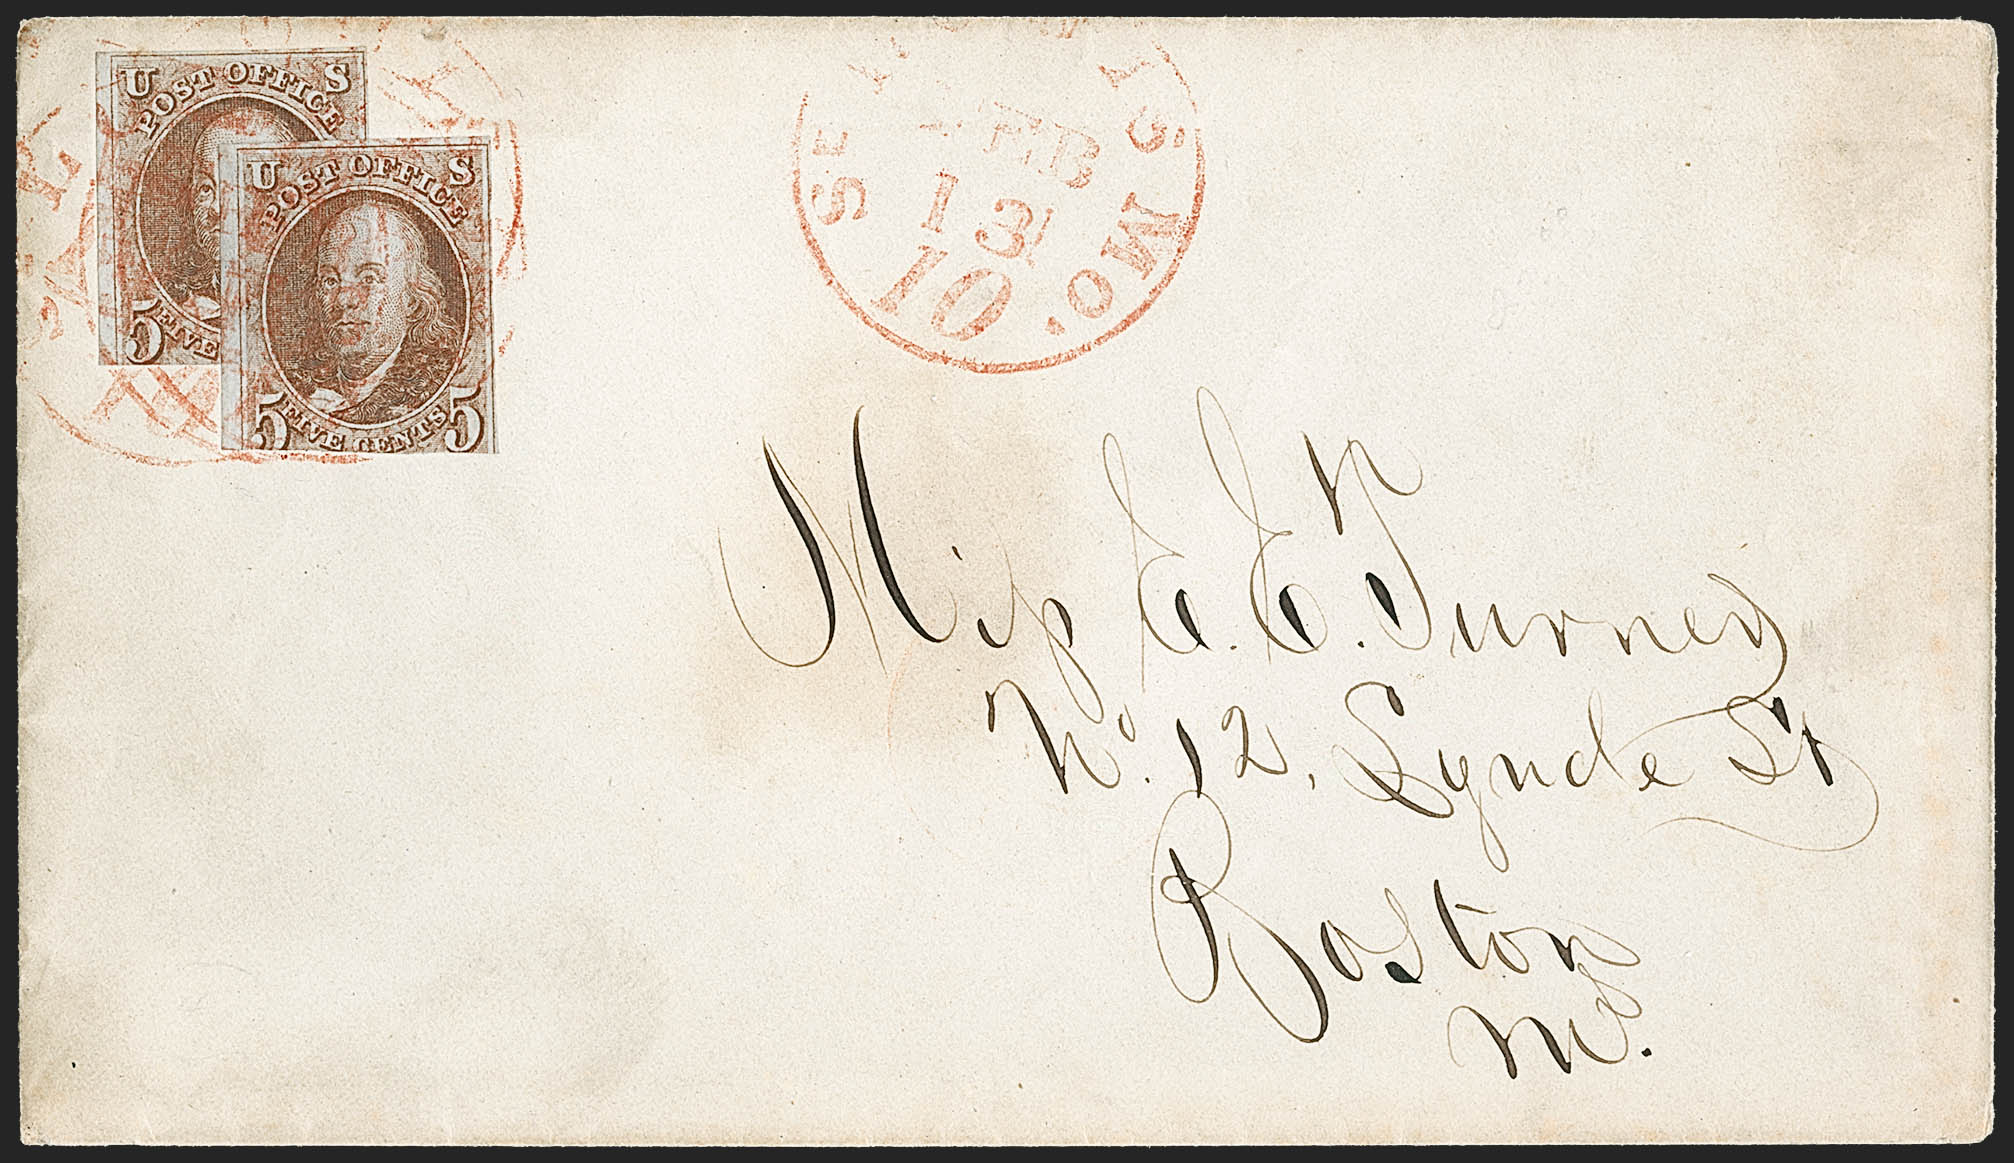 U S
POST OFFICE
5
FIVE
U S
POST OFFICE
5 FIVE CENTS 5
ST IS MO.
FEB
13
10
Miss E. E. Turner
No. 12, Lynde St
Boston
Ms.